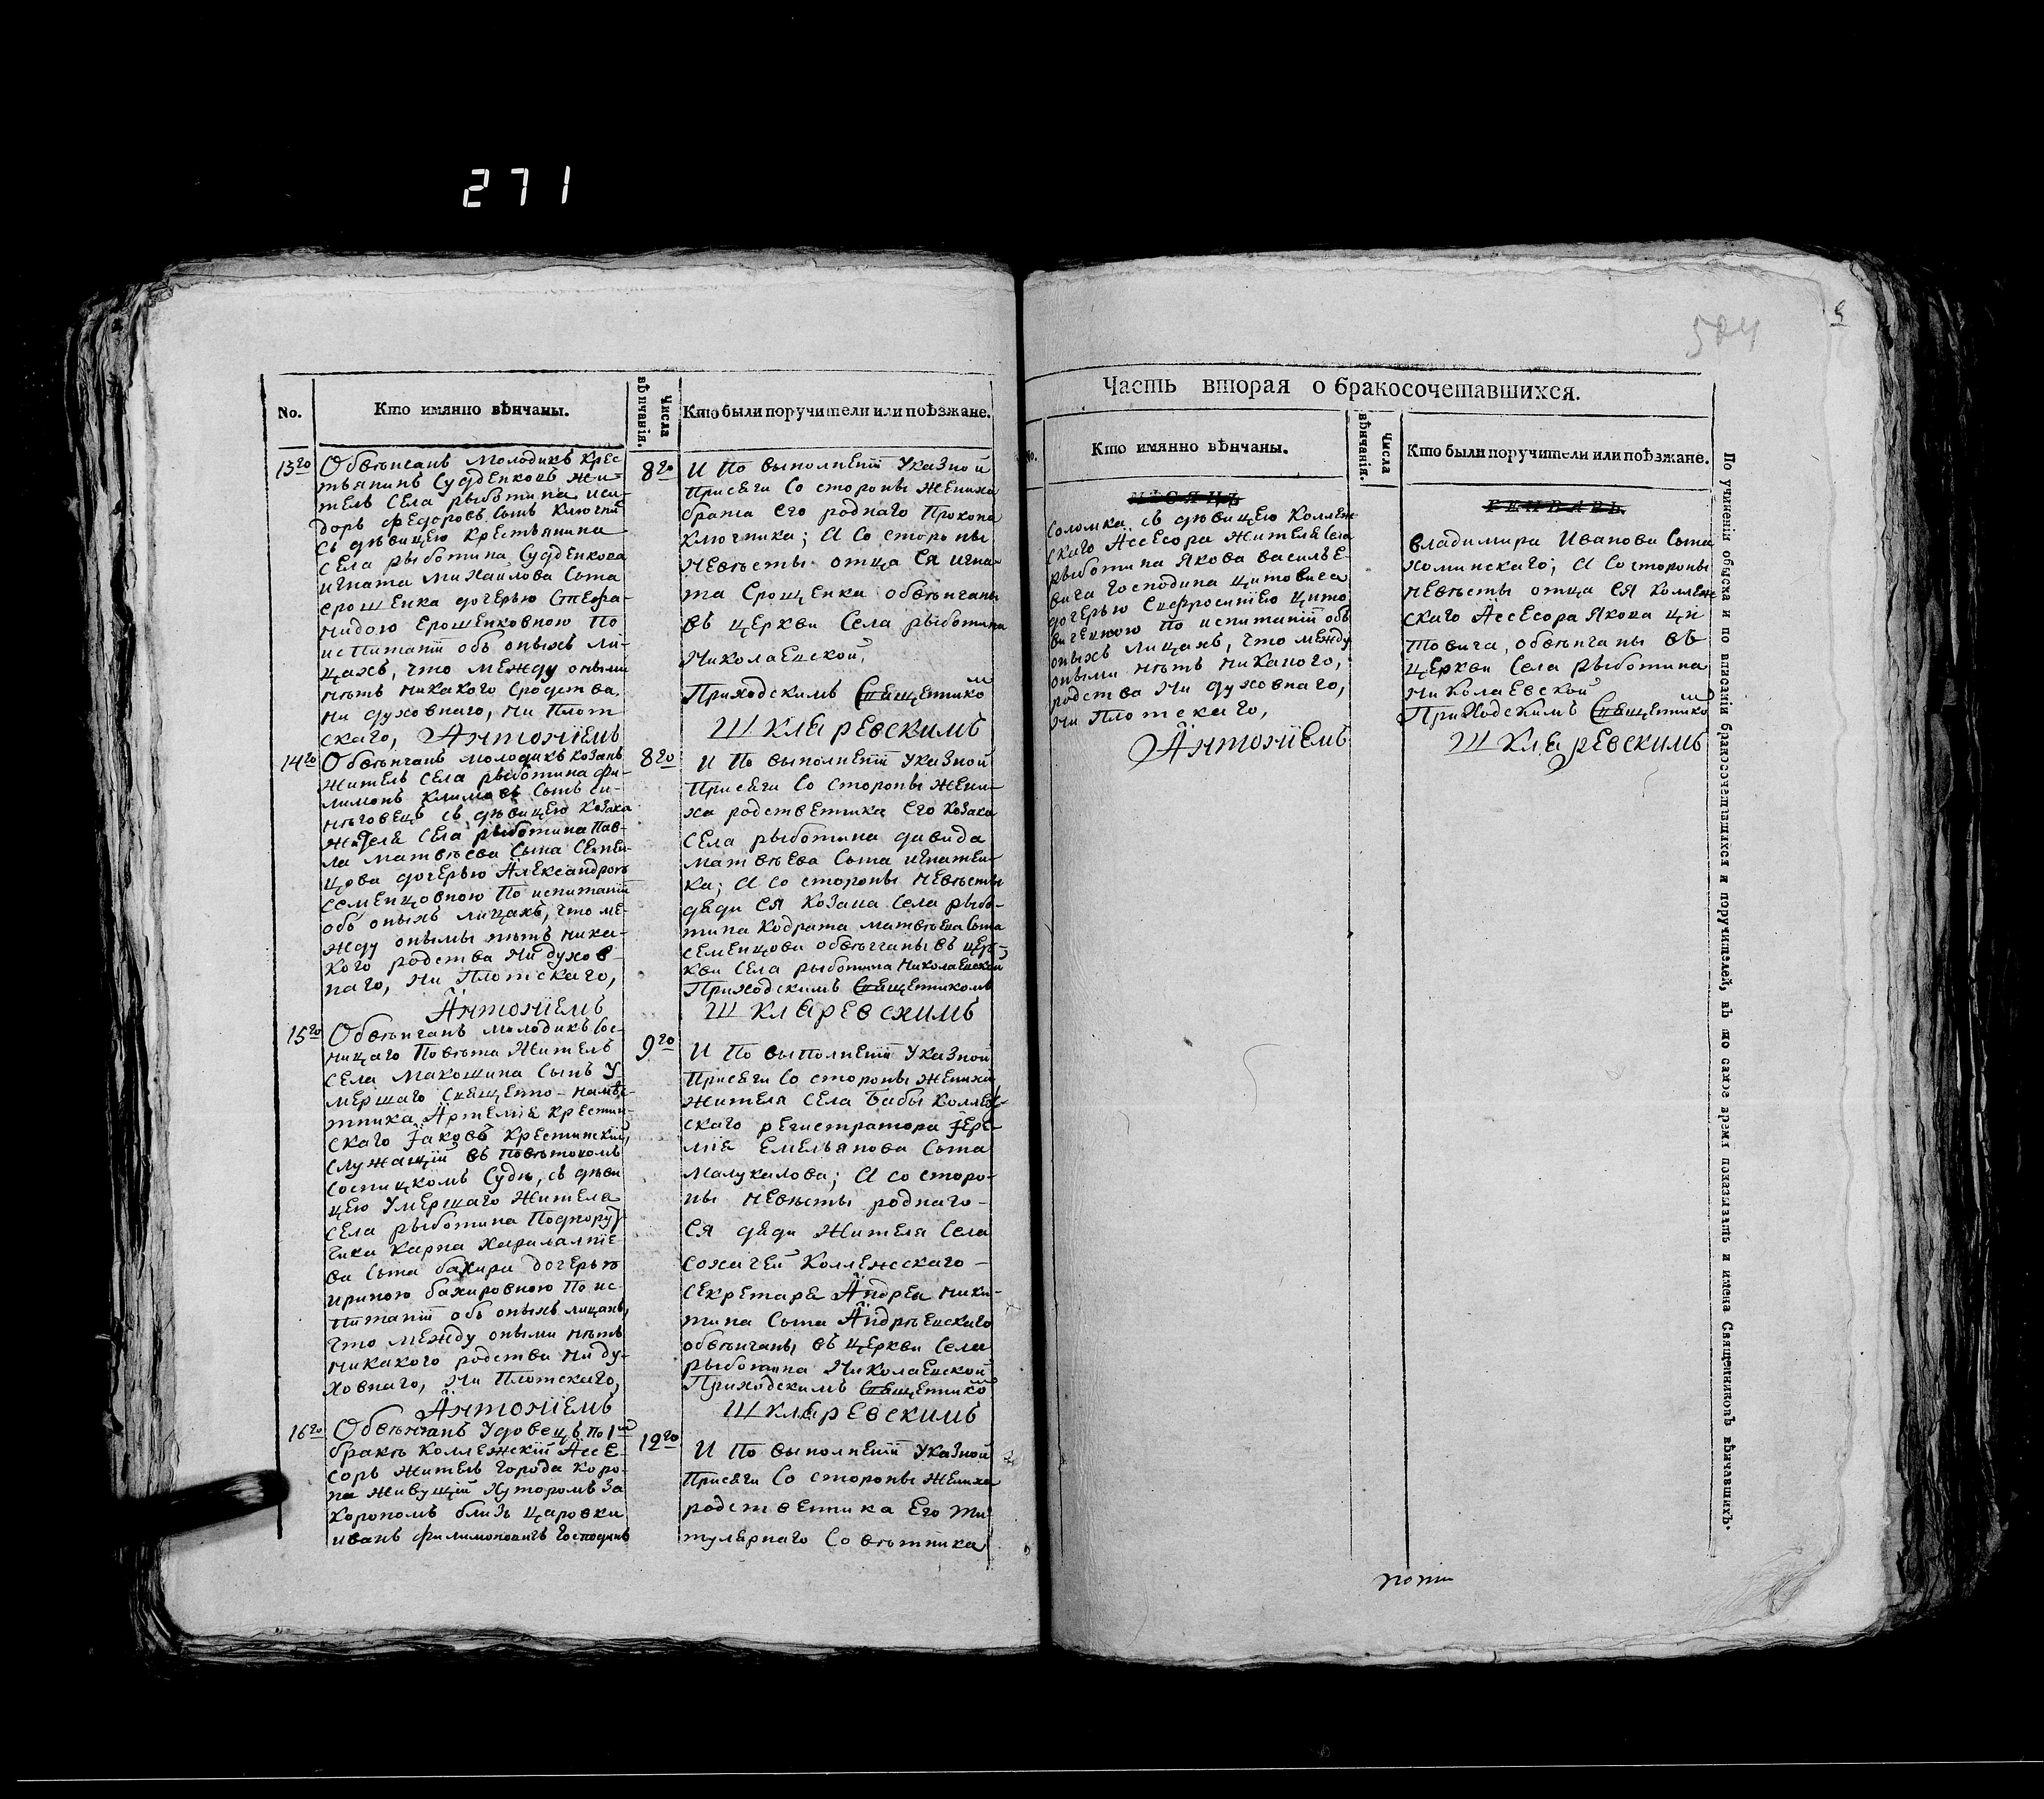 271
504
5
No.
Кто имянно вѣнчаны.
Числа вѣнчанія.
Кто были поручители или поѣзжане.
13го
Обвѣнчанъ молодикъ крес
тьянинъ Судденковъ жи-
тель села рыботина иси-
доръ федоровъ сынъ Ключни
съ дѣвицею крестьянина
села рыботина Судденкова
игната михайлова сына
ерошенка дочерью Стефа-
нидою ерошенковною По
испитанїи объ оныхъ ли-
цахъ, что между оными
нѣтъ никакого сродства,
ни духовнаго, ни Плот
скаго, Антонїемъ
8го
И По выполненїи Указной
Присяги Со стороны жениха
брата его роднаго Прокопа
Ключника; А Со стороны
невѣсты отца ея игна-
та Ерощенка обвѣнчаны
въ церкви Села рыботина
Николаевской,
Приходскимъ Священникомъ
Шкляревскимъ
14го
Обвѣнчанъ молодикъ козакъ
житель села рыботина фи-
лимонъ климовъ сынъ си-
нѣговецъ съ дѣвицею козака
жителя села рыботина Пав-
ла матвѣева сына Семен-
цова дочерью Александрою
семенцовною По испитанїи
объ оныхъ лицахъ, что ме-
жду онымы нѣтъ ника-
кого родства ни духов-
наго, ни Плотскаго,
Антонїемъ
8го
И По выполненїи Указной
Присяги Со стороны жени-
ха родственника его козака
села рыботина давида
матвѣева сына игнатен-
ка; А со стороны невѣсты
дяди ея козака села рыбо-
тина кодрата матвѣева сына
семенцова обвѣнчаны въ цер-
кви села рыботина николаевской
Приходскимъ Священникомъ
Шкляревскимъ
15го
Обвѣнчанъ молодикъ Сос-
ницкаго Повѣта житель
села Макошина сынъ у-
мершаго Священно-намѣс-
тника Артемїя Крестин-
скаго Іаковъ Крестинскїй,
служащїй въ Повѣтовомъ
Сосницкомъ Судѣ, съ дѣви
цею умершаго жителя
села рыботина Подпору-
чика карпа харалампїе-
ва сына бакира дочерью
ириною бакировною По ис-
питанїи объ оныхъ лицахъ,
что между оными нѣтъ
никакого родства ни ду-
ховнаго, ни Плотскаго,
Антонїемъ
9го
И По выполненїи Указной
Присяги Со стороны жениха
жителя села бабы Коллеж-
скаго регистратора Іере-
мїя емельянова сына
; А со сторо-
ны невѣсты роднаго-
ея дяди жителя села
Коллежскаго-
секретаря Андрея ники-
тина сына Андрѣевскаго
обвѣнчаны въ церкви села
рыботина Николаевской
Приходскимъ Священникомъ
Шкляревскимъ
16го
Обвѣнчанъ Удовецъ по 1мъ
бракѣ Коллежскїй Ассе-
соръ житель города коро-
па живущїй хуторомъ за
коропомъ близь царовки
иванъ филимоновичъ господинъ
12го
И По выполненїи Указной
Присяги Со стороны жениха
родственника его ти-
тулярнаго Совѣтника
Часть вторая о бракосочетавшихся.
No.
Кто имянно вѣнчаны.
Числа вѣнчанія.
Кто были поручители или поѣзжане.
МѢСЯЦЪ
ГЕНВАРЬ.
Соломка, съ дѣвицею Коллеж
скаго Ассесора жителя села
рыботина Якова василье-
вича господина цитовича
дочерью Евфросинїею цито
вичевною По испитанїи объ
оныхъ лицахъ, что между
оными нѣтъ никакого,
родства ни духовнаго,
ни Плотскаго,
Антонїемъ
владимира Иванова сына
хоминскаго; А Со стороны
невѣсты отца ея Коллеж
скаго Ассесора Якова ци
товича, обвѣнчаны въ
церкви села рыботина
николаевской
Приходскимъ Священникомъ
Шкляревскимъ
По учиненіи обыска и по вписаніи бракосочетавшихся и поручителей, въ то самое время показывать и имена Священниковъ вѣнчавшихъ.